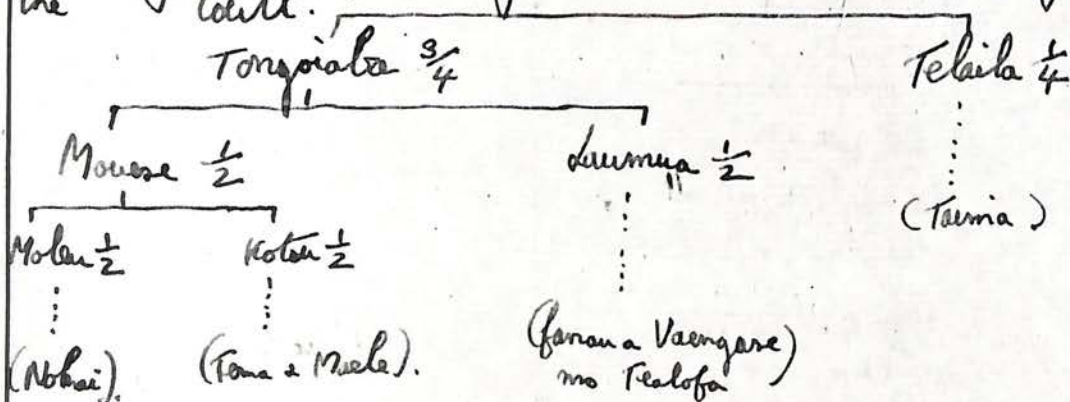 the Court.
Tongoiaba 3/4 Telaila 1/4
Mouese 1/2 Luumua 1/2
(Taumia)
Molau 1/2 Kotou 1/2
(fanau a Vaengase)
mo Tealofa